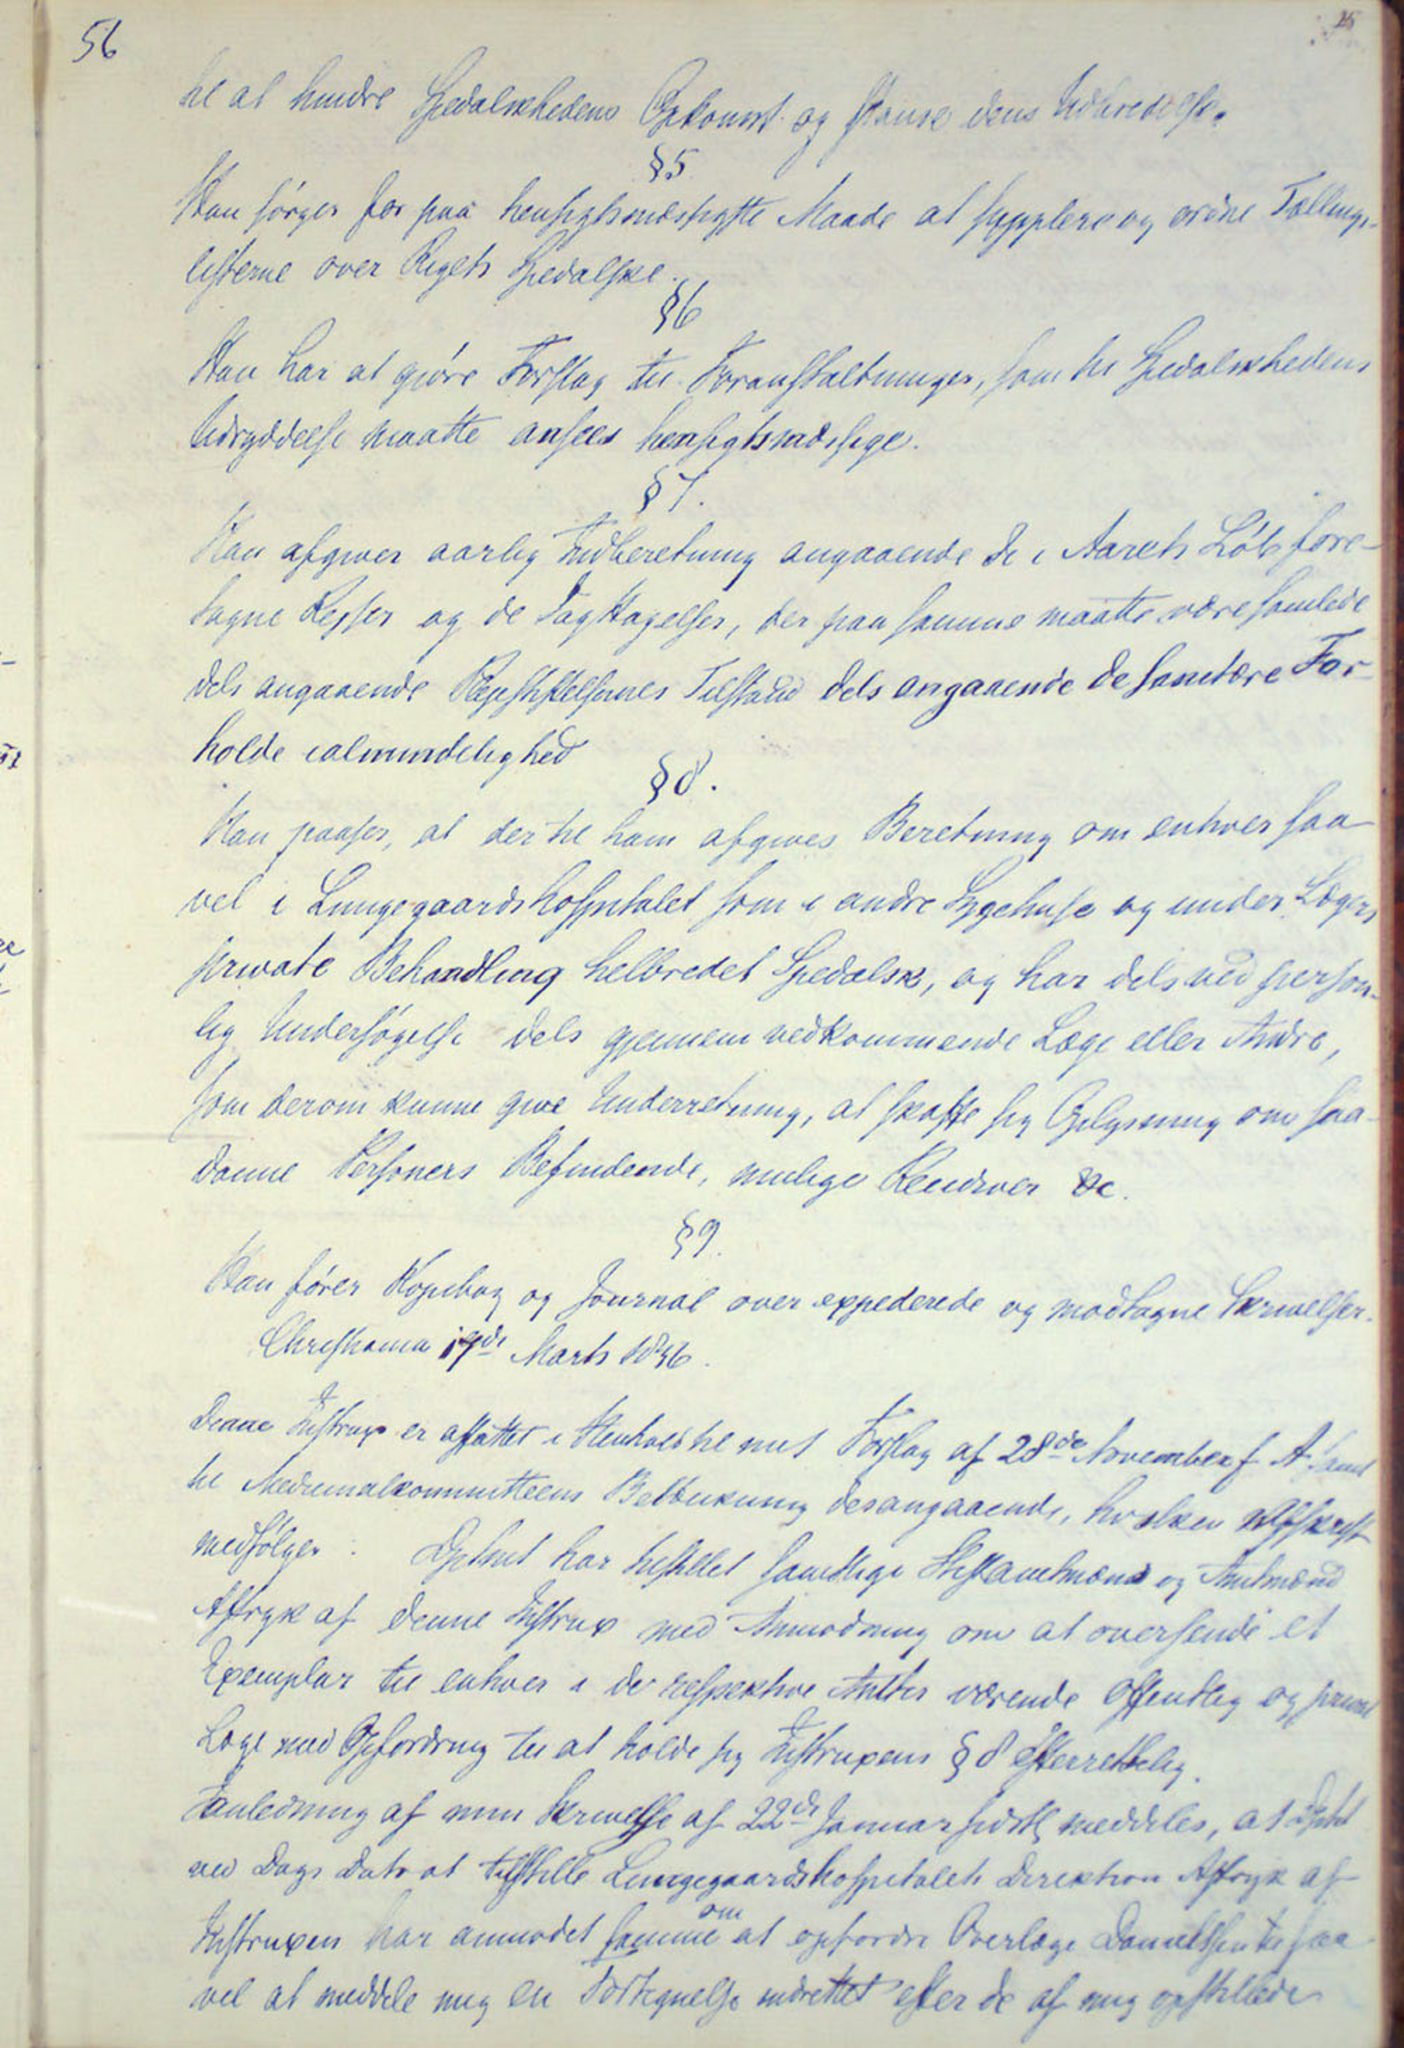 56
25
til at hindre Spedalskhedens Opkomst og standse dens Udbredelse.
§5
Han sørger for paa hensigtsmæssigste Maade at supplere og ordne Tællings-
listerne over Rigets Spedalske.
§6
Han har at gjøre Forslag til Foranstaltninger, som til Spedalskhedens
Udryddelse maatte ansees hensigtsmæssige.
§7.
Han afgiver aarlig Indberetning angaaende de i Aarets Løb fore-
tagne Rejser og de Iagttagelser, der paa samme maatte være samlede
dels angaaende Plejestiftelsernes Tilstand dels angaaende de sanitære For-
holde i almindelighed
§8.
Han paaser, at der til ham afgives Beretning om enhver saa-
vel i Lungegaardshospitalet som i andre Sygehuse og under Lægers
private Behandling helbredet Spedalsk, og har dels ved person-
lig Undersøgelse dels gjennem vedkommende Læge eller Andre,
som derom kunne give Underretning, at skaffe sig Oplysning om saa-
danne Personers Befindende, mulige Recidiver &c.
§9.
Han fører Kopibog og Journal over expederede og modtagne Skrivelser.
Christiania 19de Marts 1856.
Denne Instrux er affattet i Henhold til mit Forslag af 28de November f. A. samt
til Medicinalkommitteens Betænkning desangaaende, hvilken i Afskrift
medfølger. Deptmt har tilstillet samtlige Stiftamtmænd og Amtmænd
Aftryk af denne Instrux med Anmodning om at oversende et
Exemplar til enhver i de respektive Amter værende offentlig og privat
Læge med Opfordring til at holde sig Instruxens §8 efterrettelig.
I anledning af min Skrivelse af 22de Januar sidstl meddeles, at Deptmt
ved Dags Dato at tilstille Lungegaardshospitalets Direktion Aftryk af
Instruxen har anmodet samme om at opfordre Overlæge Danielssen til saa-
vel at meddele mig en Fortegnelse indrettet efter de af mig opstillede